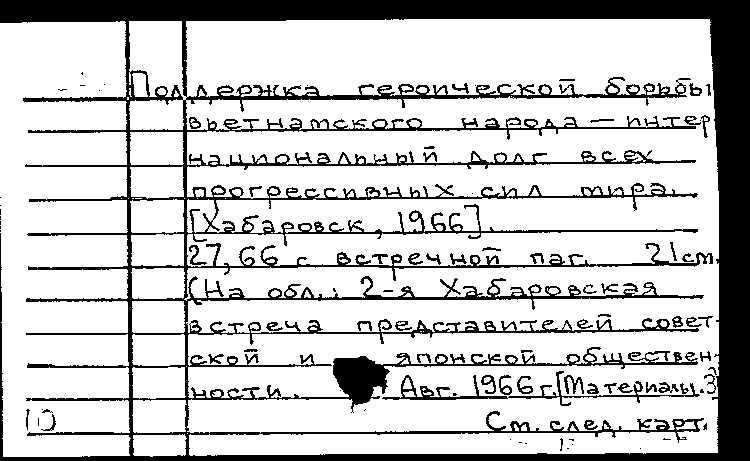 Поддержка героической борьбы
вьетнамского народа — интер
национальный долг всех
прогрессивных сил мира.
[Хабаровск, 1966].
27, 66 с встречной паг. 21см.
(На обл.: 2-я Хабаровская
встреча представителей совет-
ской и японской обществен-
ности. Авг. 1966 г.[Материалы.3
10 См. след. карт.